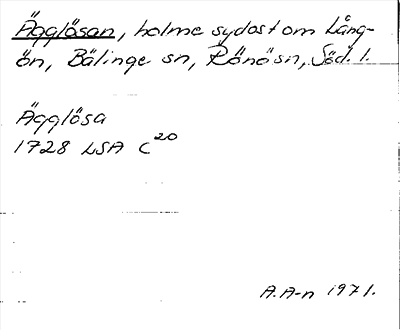 Ägglösan, holme sydost om Lång-
ön, Bälinge sn, Rönö sn, Söd. l.
Ägglösa
1728 LSA C20
A.A-n 1971.